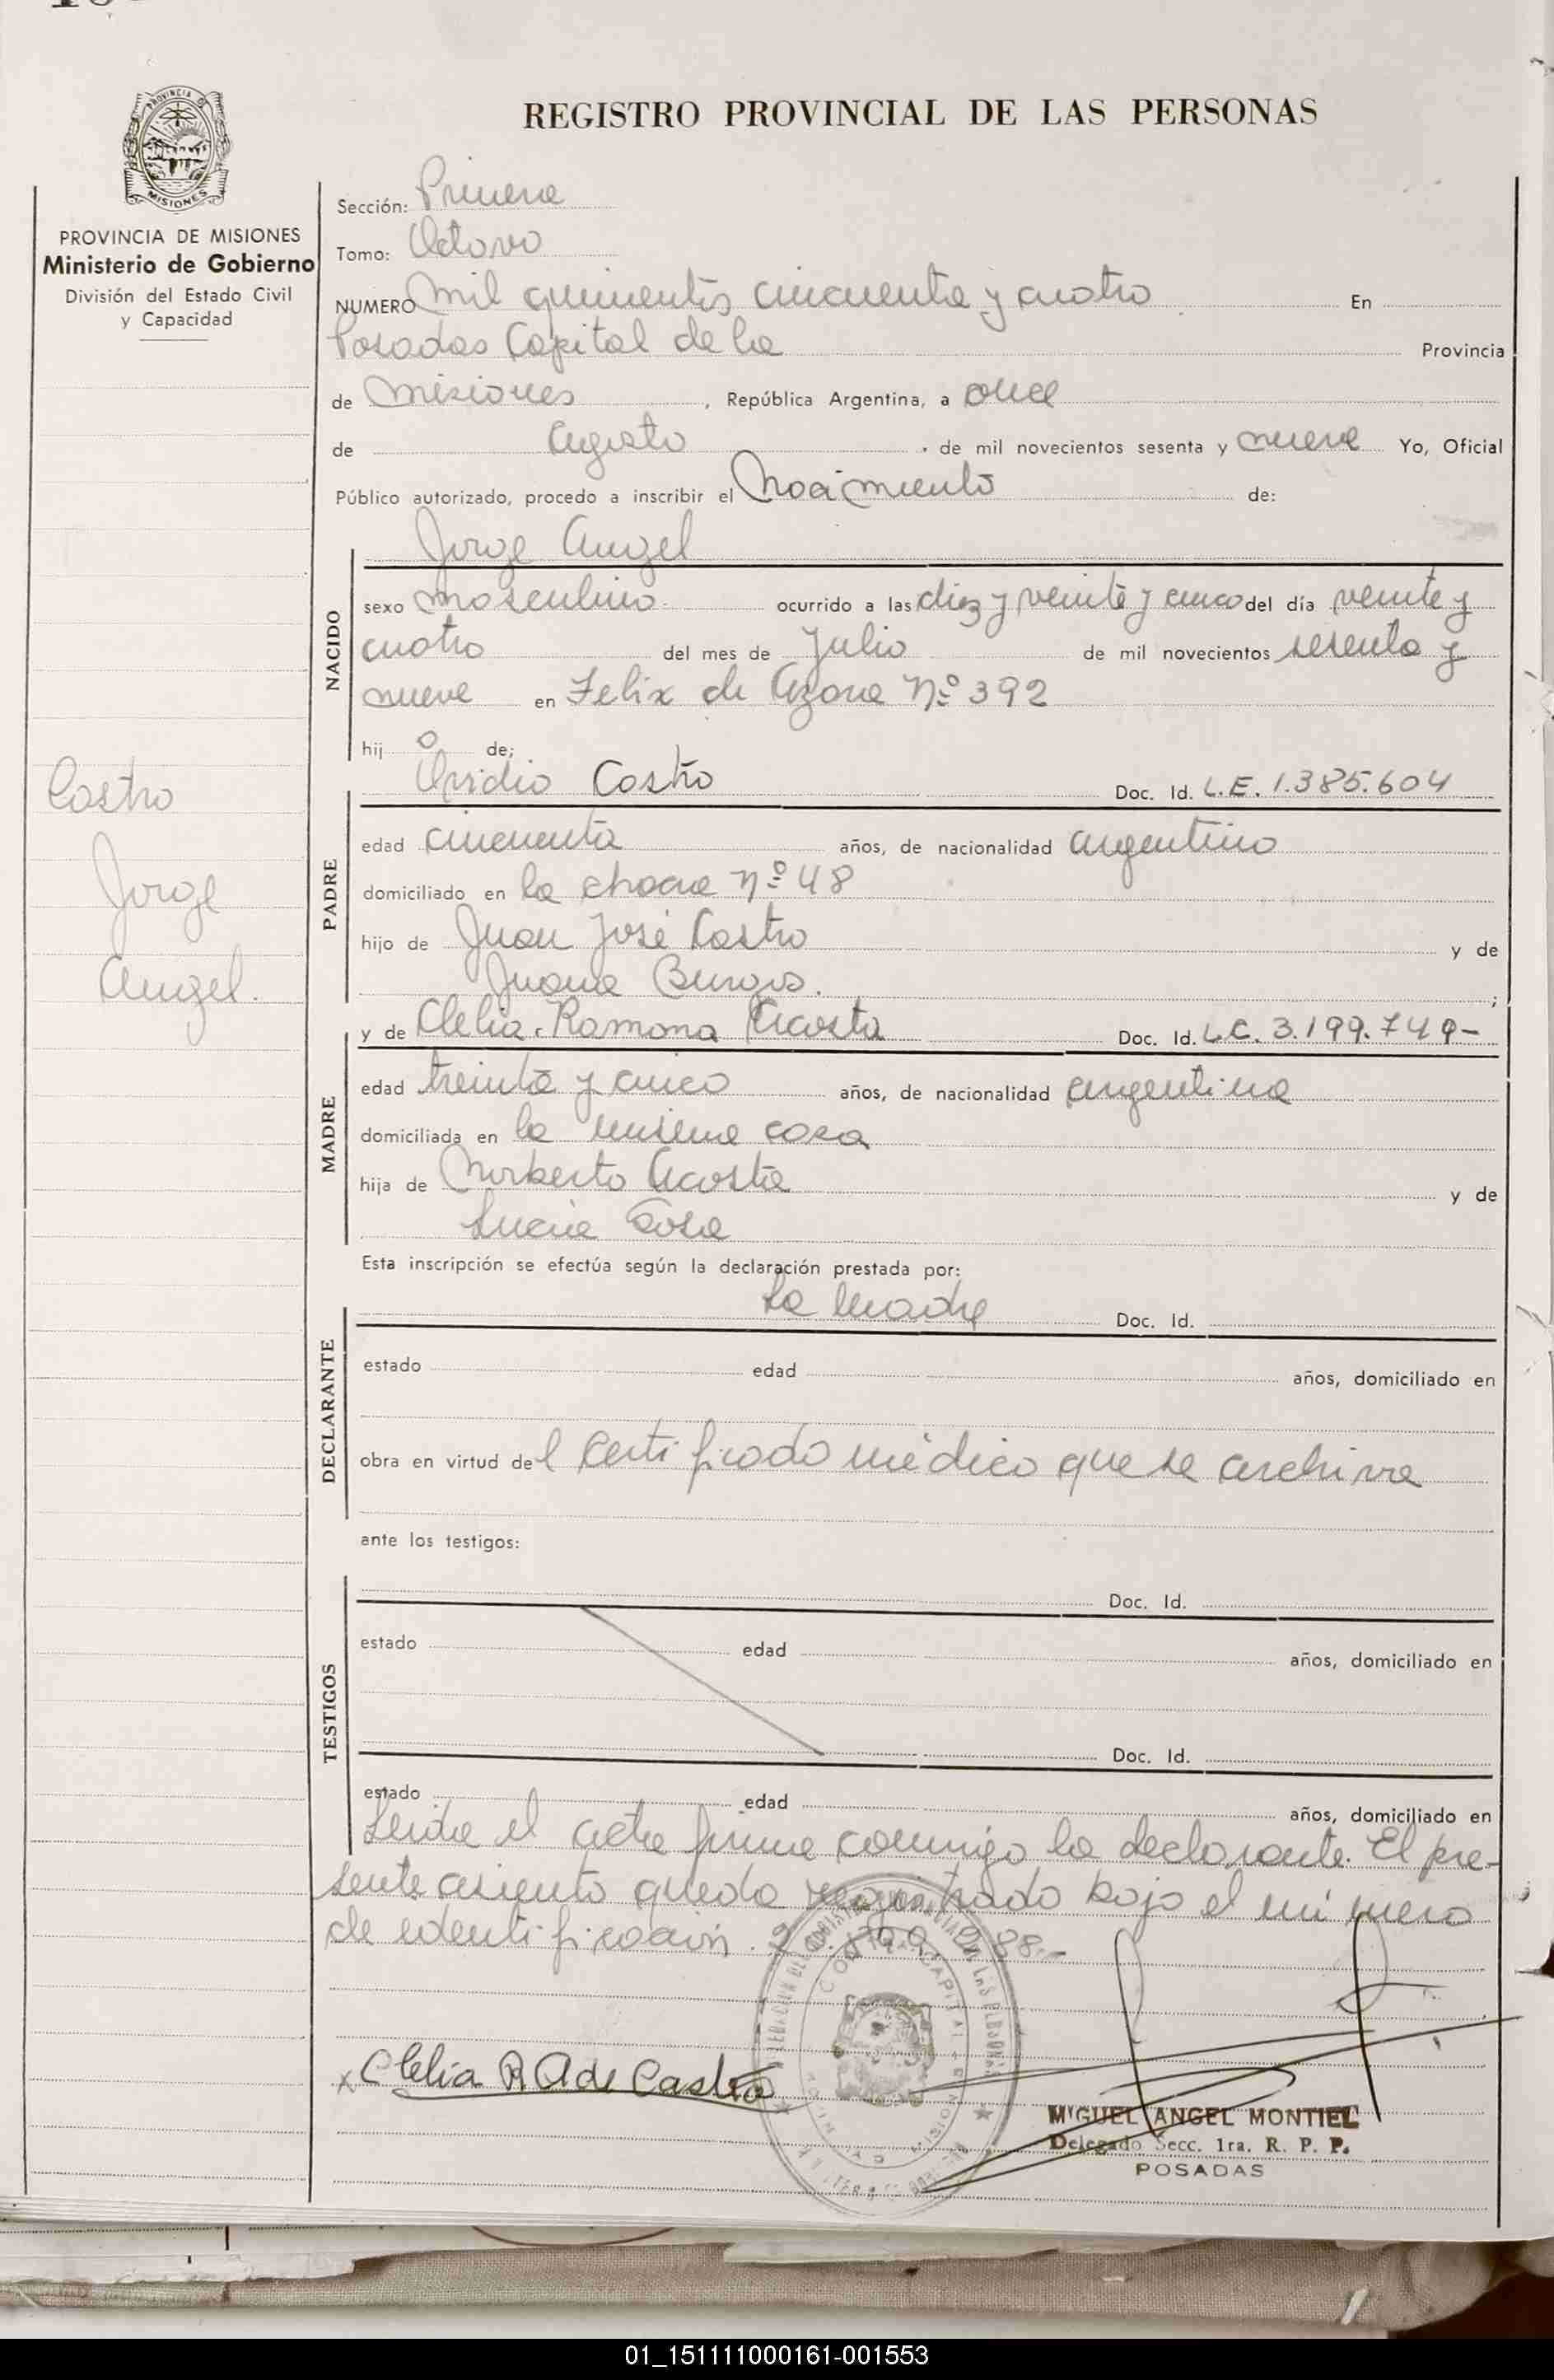 REGISTRO PROVINCIAL DE LAS PERSONAS
PROVINCIA DE MISIONES
Ministerio de Gobierno
División del Estado Civil
y Capacidad
Castro
Jorge
Angel.
Sección: Primera
Tomo: Octavo
NUMERO mil quinientos cincuenta y cuatro En
Posadas Capital de la Provincia
de misiones, República Argentina, a once
de Agosto de mil novecientos sesenta y nueve Yo, Oficial
Público autorizado, procedo a inscribir el Nacimiento de:
Jorge Angel
NACIDO
sexo masculino ocurrido a las diez y veinte y cinco del día veinte y
cuatro del mes de Julio de mil novecientos sesenta y
nueve en Felix de Azara Nº 392
hij o de;
Ovidio Castro Doc. Id. L.E. 1.385.604
PADRE
edad cincuenta años, de nacionalidad argentino
domiciliado en la chacra nº 48
hijo de Juan José Castro y de
Juana Burgos.;
y de Clelia Ramona Acosta Doc. Id. L.C. 3.199.749-
MADRE
edad treinta y cinco años, de nacionalidad argentina
domiciliada en la misma casa
hija de Norberto Acosta y de
Lucia Sosa
Esta inscripción se efectúa según la declaración prestada por:
La madre Doc. Id.
DECLARANTE
estado edad años, domiciliado en
obra en virtud del certificado médico que se archiva
ante los testigos:
Doc. Id.
TESTIGOS
estado edad años, domiciliado en
Doc. Id.
estado edad años, domiciliado en
Leida el acta firma conmigo la declarante. El pre-
sente asiento queda registrado bajo el número
de identificación. 288.-
x Clelia R A de Castro
MIGUEL ANGEL MONTIEL
Delegado Secc. 1ra. R. P. P.
POSADAS
01_151111000161-001553